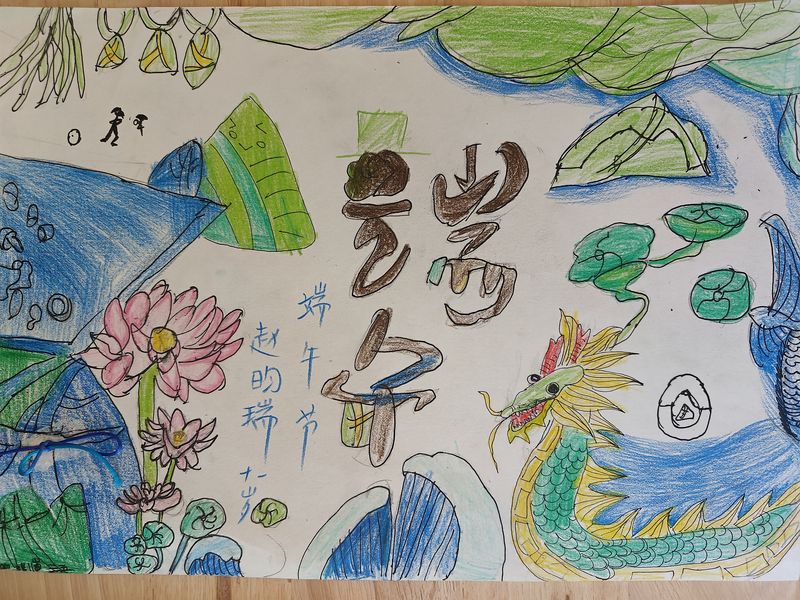 端午
端午节
赵昀瑞十一岁